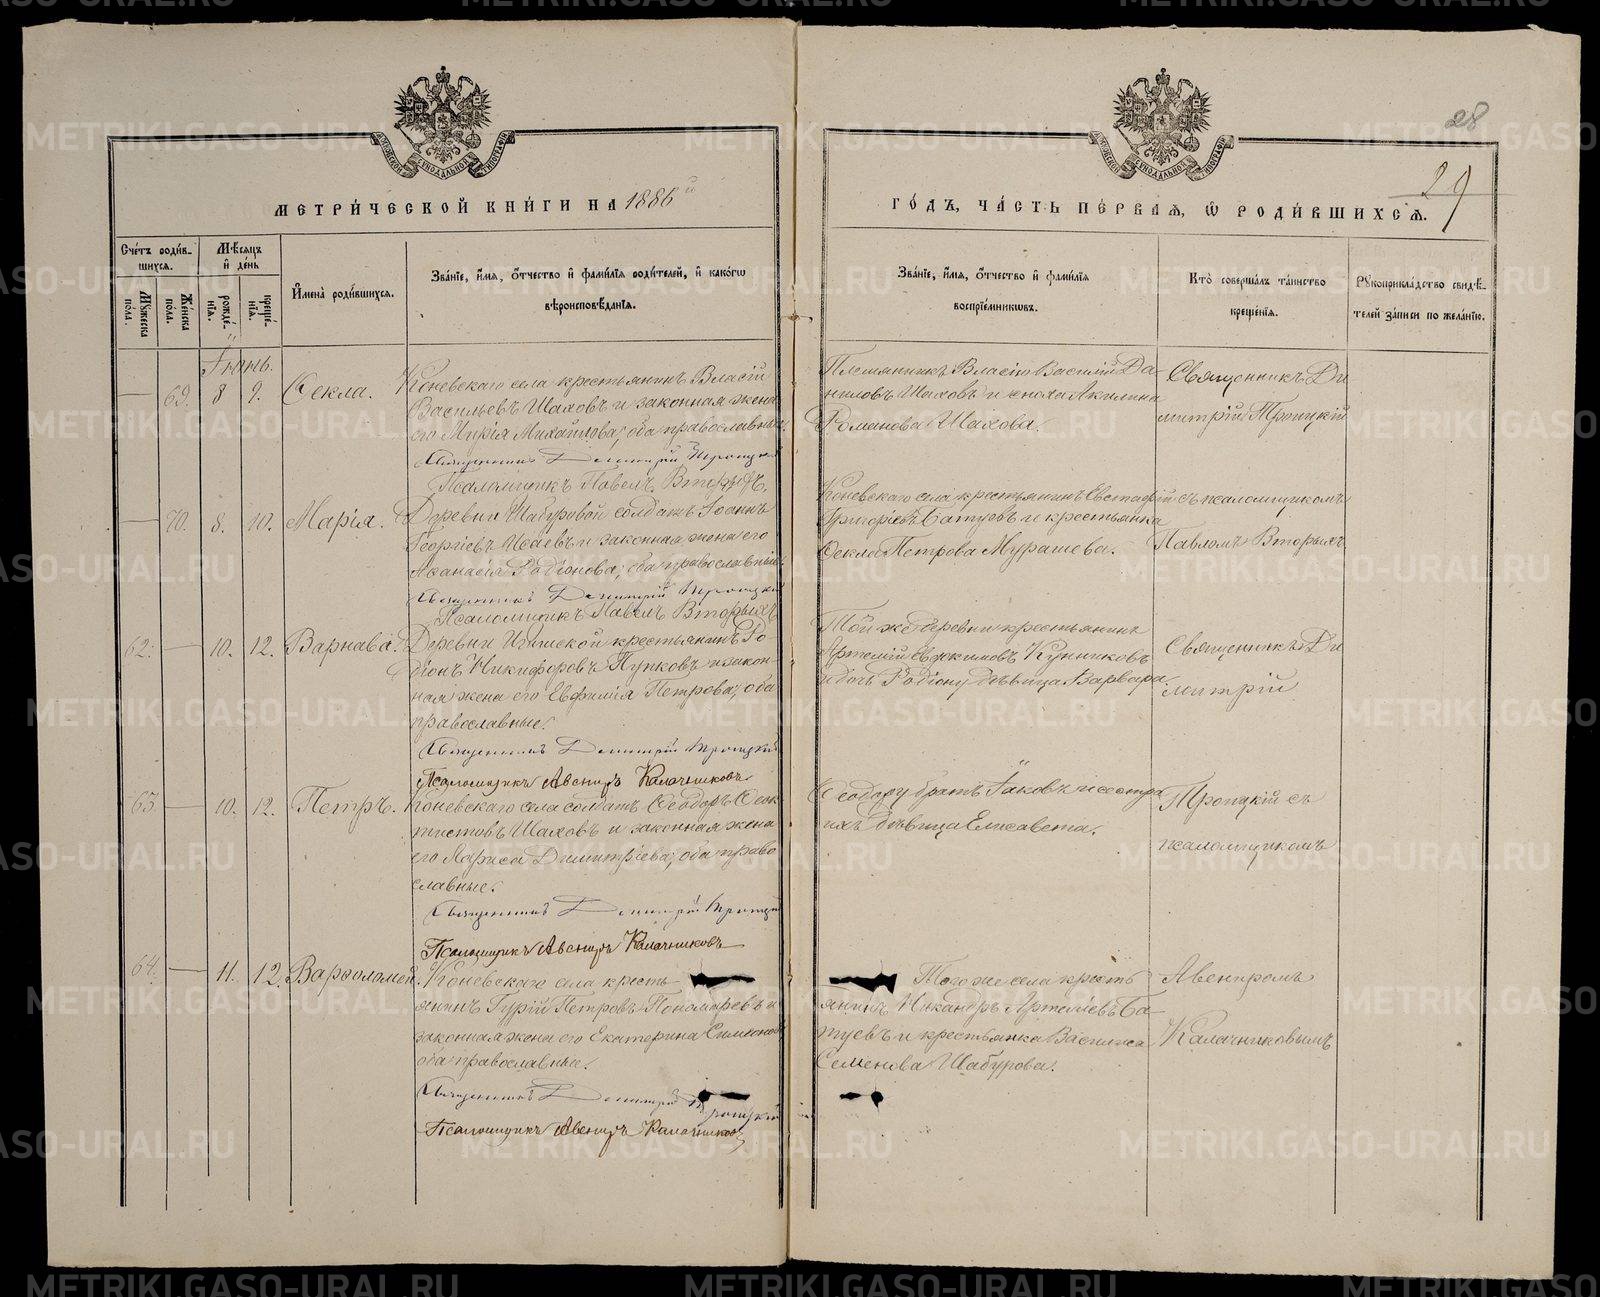 28
29
МЕТРИЧЕСКОЙ КНИГИ НА 1886й
ГОДЪ, ЧАСТЬ ПЕРВАЯ, Ѡ РОДИВШИХСЯ.
Счетъ родив-
шихся.
Мѣсяцъ
и день
Мужеска пола.
Женска пола.
рожде-
нія.
креще-
нія.
Имена родившихся.
Званіе, имя, отчество и фамилія родителей, и какогѡ
вѣроисповѣданія.
Званіе, имя, отчество и фамилія
воспріемникѡвъ.
Кто совершалъ таинство
крещенія.
Рукоприкладство свидѣ-
телей записи по желанію.
Іюнь.
69. 8 9. Ѳекла.
Коневскаго села крестьянинъ Власій
Васильевъ Шаховъ и законная жена
его Марія Михайлова, оба православные.
Священникъ Димитрій Троицкій
Псаломщикъ Павелъ Вторыхъ.
Племянникъ Власію Василій Да-
ниловъ Шаховъ и сноха Акилина
Романова Шахова.
Священникъ Ди
митрій Троицкій
70. 8. 10. Марія.
Деревни Шабуровой солдатъ Іоаннъ
Георгіевъ Исаевъ и законная жена его
Аѳанасія Родіонова, оба православные.
Священникъ Димитрій Троицкій
Псаломщикъ Павелъ Вторыхъ
Коневскаго села крестьянинъ Евстафій
Григоріевъ Батуевъ и крестьянка
Ѳекла Петрова Мурашева.
съ псаломщикомъ
Павломъ Вторыхъ
62. 10. 12. Варнава.
Деревни крестьянинъ Ро-
діонъ Никифоровъ Пупковъ и закон-
ная жена его Евфимія Петрова, оба
православные.
Священникъ Димитрій Троицкій
Псаломщикъ Авениръ Калачниковъ
Той же деревни крестьянинъ
Артемій Евдокимовъ Куников
и дочь Родіону дѣвица Варвара.
Священникъ Ди
митрій
63 10. 12. Петръ.
Коневскаго села солдатъ Ѳеодоръ Ѳеок
тистовъ Шаховъ и законная жена
его Лариса Димитріева, оба право
славные.
Священникъ Димитрій Троицкій
Псаломщикъ Авениръ Калачниковъ
Ѳеодору братъ Іаковъ и сестра
ихъ дѣвица Елисавета.
Троицкій съ
псаломщикомъ
64. 11. 12. Варѳоломей.
Коневскаго села кресть
янинъ Гурій Петровъ Пономаревъ и
законная жена его Екатерина Симеонова
оба православные.
Священникъ Димитрій Троицкій
Псаломщикъ Авениръ Калачниковъ
Того же села кресть
янинъ Никандръ Артеміевъ Ба-
туевъ и крестьянка Василиса
Семенова Шабурова.
Авениромъ
Калачниковымъ
METRIKI.GASO-URAL.RU